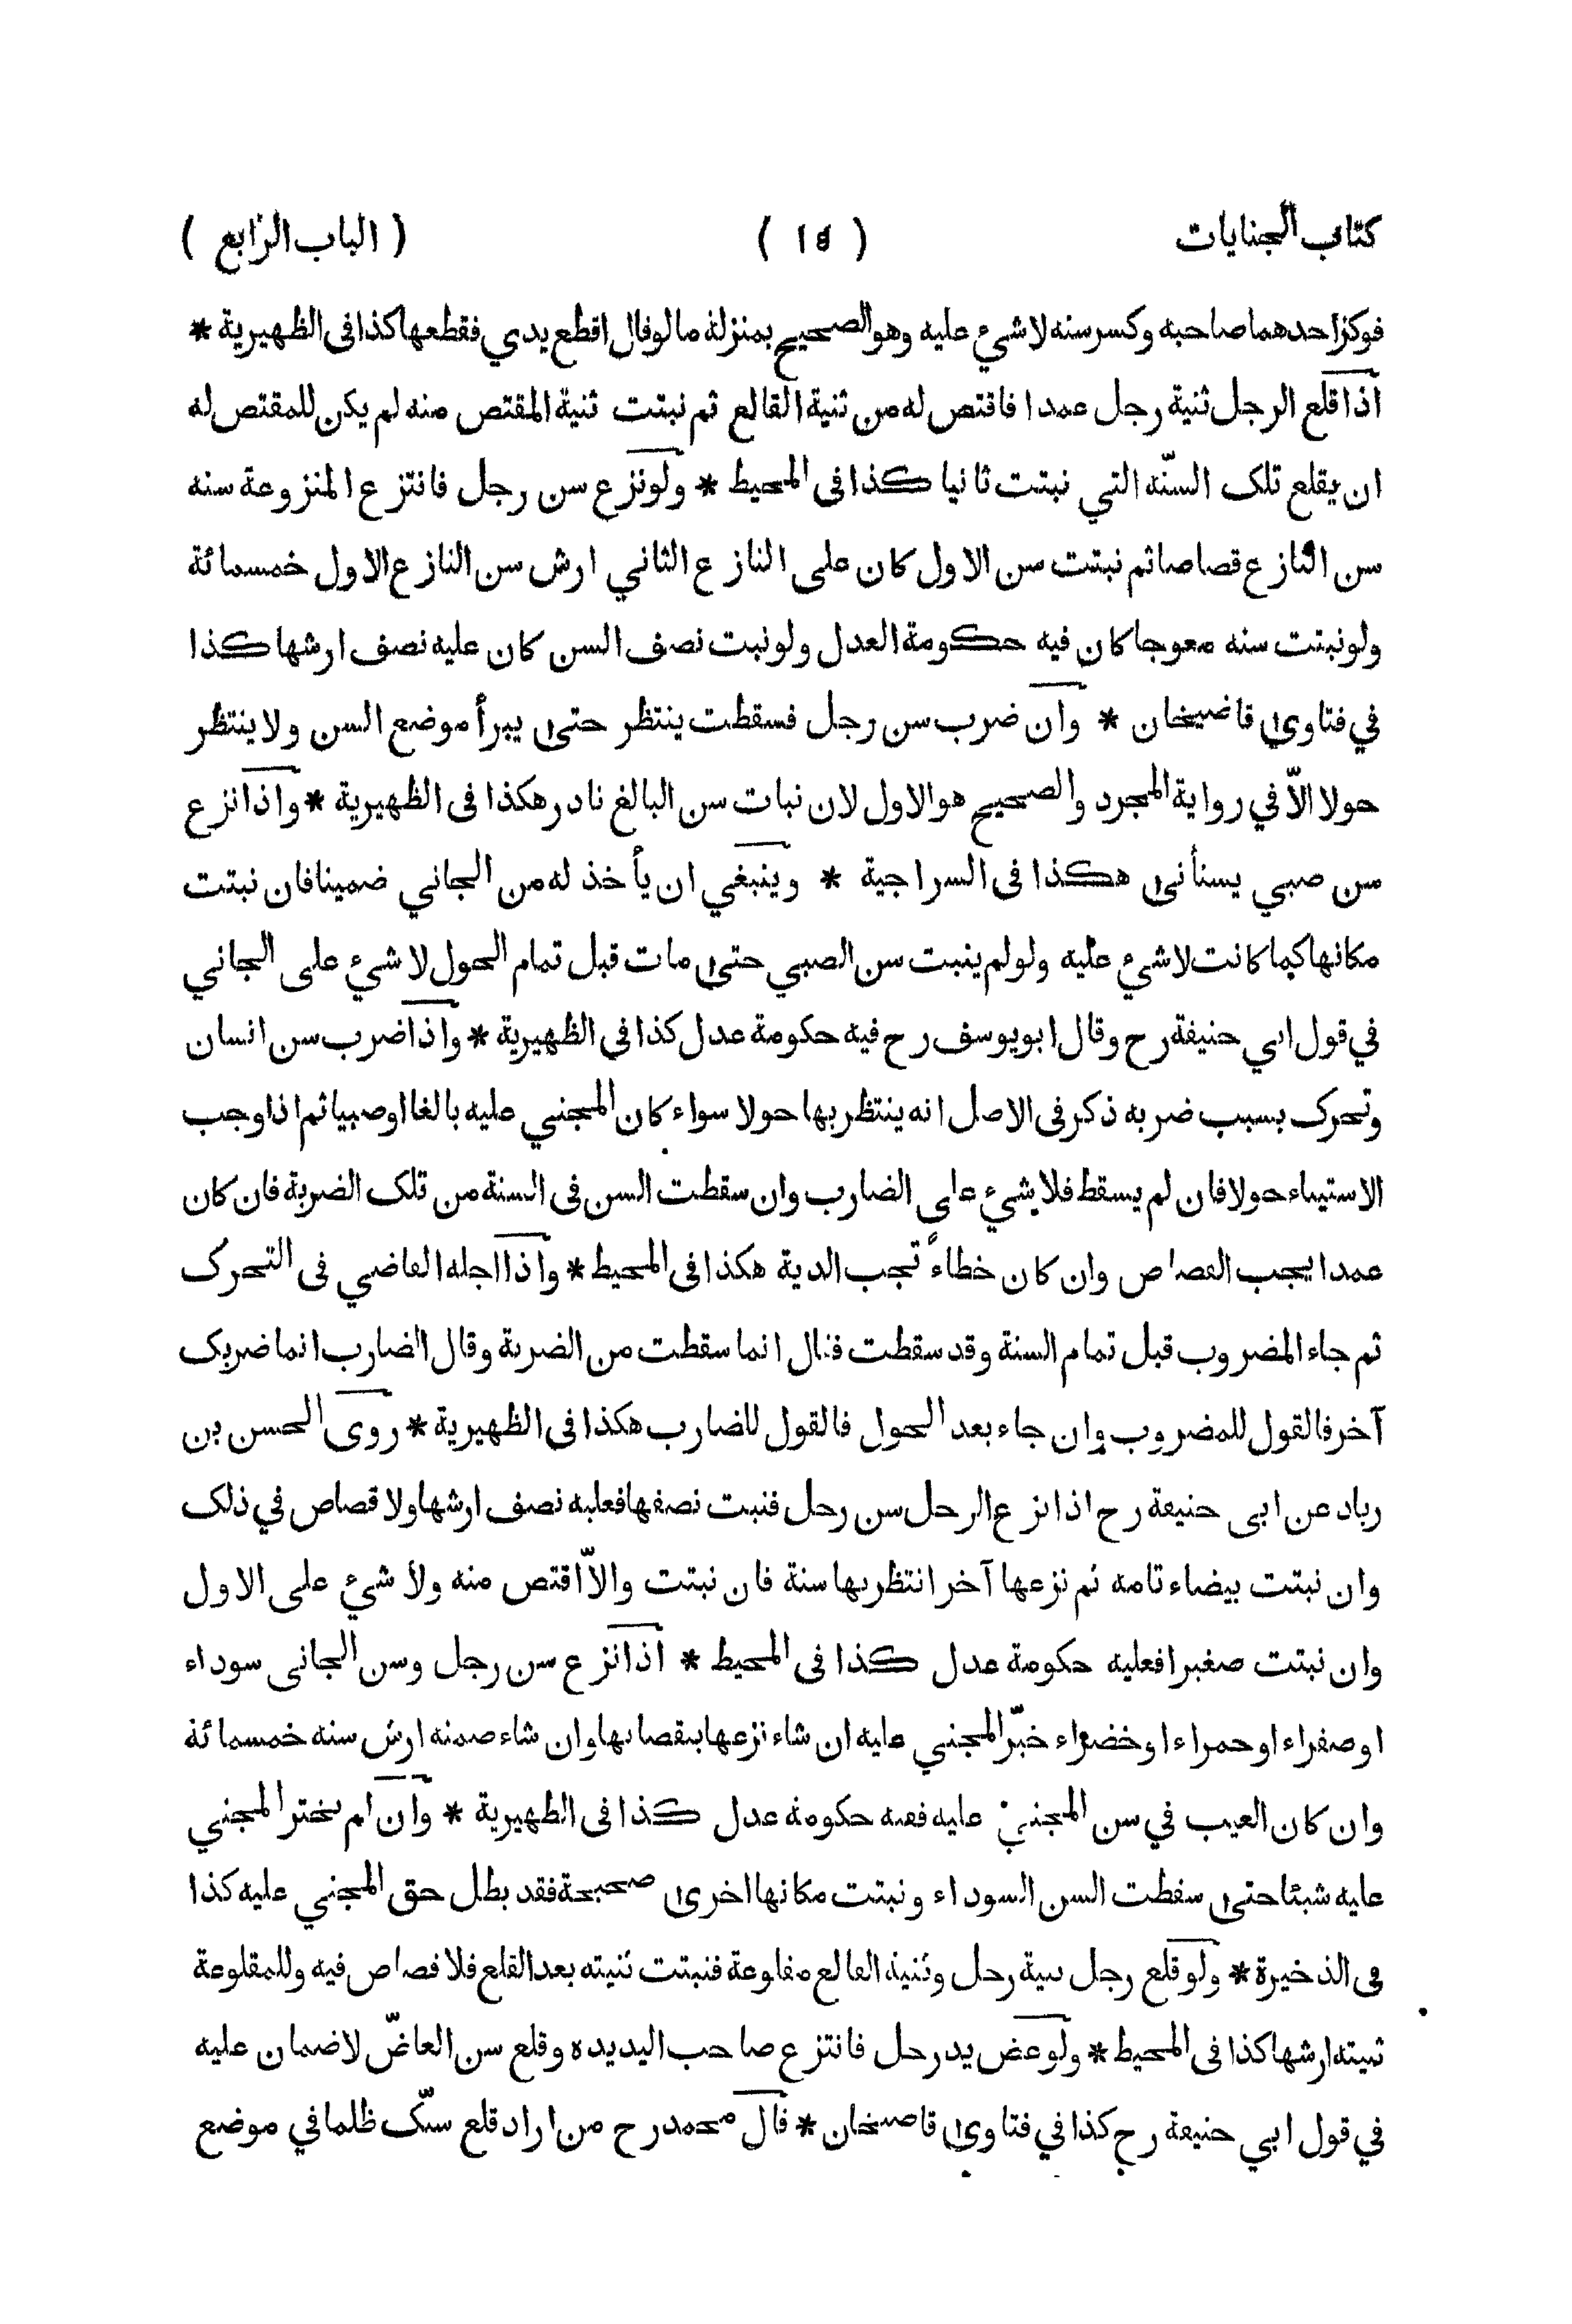 كتاب الجنايات ( ١٥ ) ( الباب الرابع )
فوكز احدهما صاحبه وكسر سنه لا شيء عليه وهو الصحيح بمنزلة ما لو قال اقطع يدي فقطعها كذا فى الظهيرية *
اذا قلع الرجل ثنية رجل عمدا فاقتص له من ثنية القالع ثم نبتت ثنية المقتص منه لم يكن للمقتص له
ان يقلع تلك السنّه التي نبتت ثانيا كذا فى المحيط * ولو نزع سن رجل فانتزع المنزوعة سنه
سن النازع قصاصا ثم نبتت سن الاول كان على النازع الثاني ارش سن النازع الاول خمسمائة
ولو نبتت سنه معوجا كان فيه حكومة العدل ولو نبت نصف السن كان عليه نصف ارشها كذا
في فتاوى قاضيخان * وان ضرب سن رجل فسقطت ينتظر حتى يبرأ موضع السن ولا ينتظر
حولا الاّ في رواية المجرد والصحيح هو الاول لان نبات سن البالغ نادر هكذا فى الظهيرية * واذا نزع
سن صبي يستأنى هكذا فى السراجية * وينبغي ان يأخذ له من الجاني ضمينا فان نبتت
مكانها كما كانت لا شيء عليه ولو لم ينبت سن الصبي حتى مات قبل تمام الحول لا شيء على الجاني
في قول ابي حنيفة رح وقال ابو يوسف رح فيه حكومة عدل كذا في الظهيرية * واذا ضرب سن انسان
وتحرك بسبب ضربه ذكر فى الاصل انه ينتظر بها حولا سواء كان المجني عليه بالغا او صبيا ثم اذا وجب
الاستيناء حولا فان لم يسقط فلا شيء على الضارب وان سقطت السن فى السنة من تلك الضربة فان كان
عمدا يجب القصاص وان كان خطاءً تجب الدية هكذا فى المحيط * واذا اجله القاضي فى التحرك
ثم جاء المضروب قبل تمام السنة وقد سقطت فقال انما سقطت من الضربة وقال الضارب انما ضربك
آخر فالقول للمضروب وان جاء بعد الحول فالقول للضارب هكذا فى الظهيرية * روى الحسن بن
زياد عن ابى حنيفة رح اذا نزع الرجل سن رجل فنبت نصفها فعليه نصف ارشها ولا قصاص في ذلك
وان نبتت بيضاء تامه ثم نزعها آخر انتظر بها سنة فان نبتت والاّ اقتص منه ولا شيء على الاول
وان نبتت صغيرا فعليه حكومة عدل كذا فى المحيط * اذا نزع سن رجل وسن الجانى سوداء
او صفراء او حمراء او خضراء خيّر المجني عليه ان شاء نزعها بنقصانها وان شاء ضمنه ارش سنه خمسمائة
وان كان العيب في سن المجني عليه ففيه حكومة عدل كذا فى الظهيرية * وان لم يختر المجني
عليه شيئا حتى سقطت السن السوداء ونبتت مكانها اخرى صحيحة فقد بطل حق المجني عليه كذا
فى الذخيرة * ولو قلع رجل ثنية رجل وثنية القالع مقلوعة فنبتت ثنيته بعد القلع فلا قصاص فيه وللمقلوعة
ثنيته ارشها كذا فى المحيط * ولو عض يد رجل فانتزع صاحب اليد يده وقلع سن العاضّ لا ضمان عليه
في قول ابي حنيفة رح كذا في فتاوى قاضيخان * قال محمد رح من اراد قلع سنّك ظلما في موضع